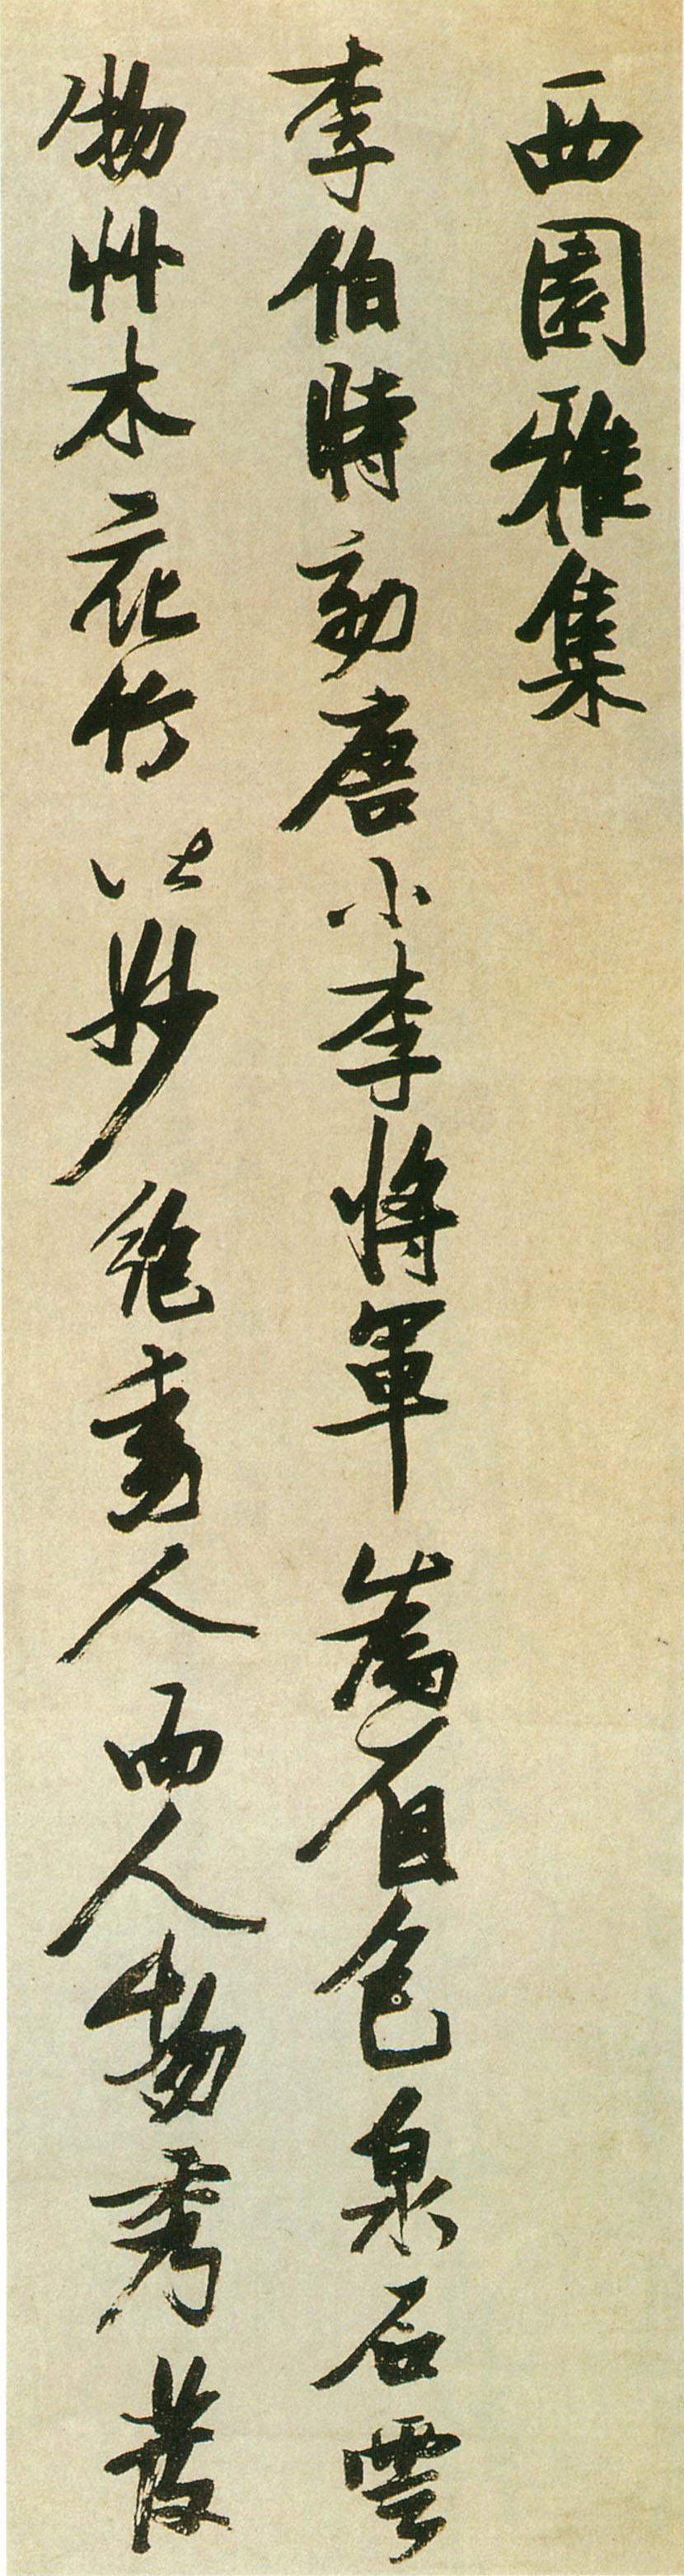 西園雅集
李伯時効唐小李將軍為着色泉石雲
物艸木花竹皆妙絕動人而人物秀發